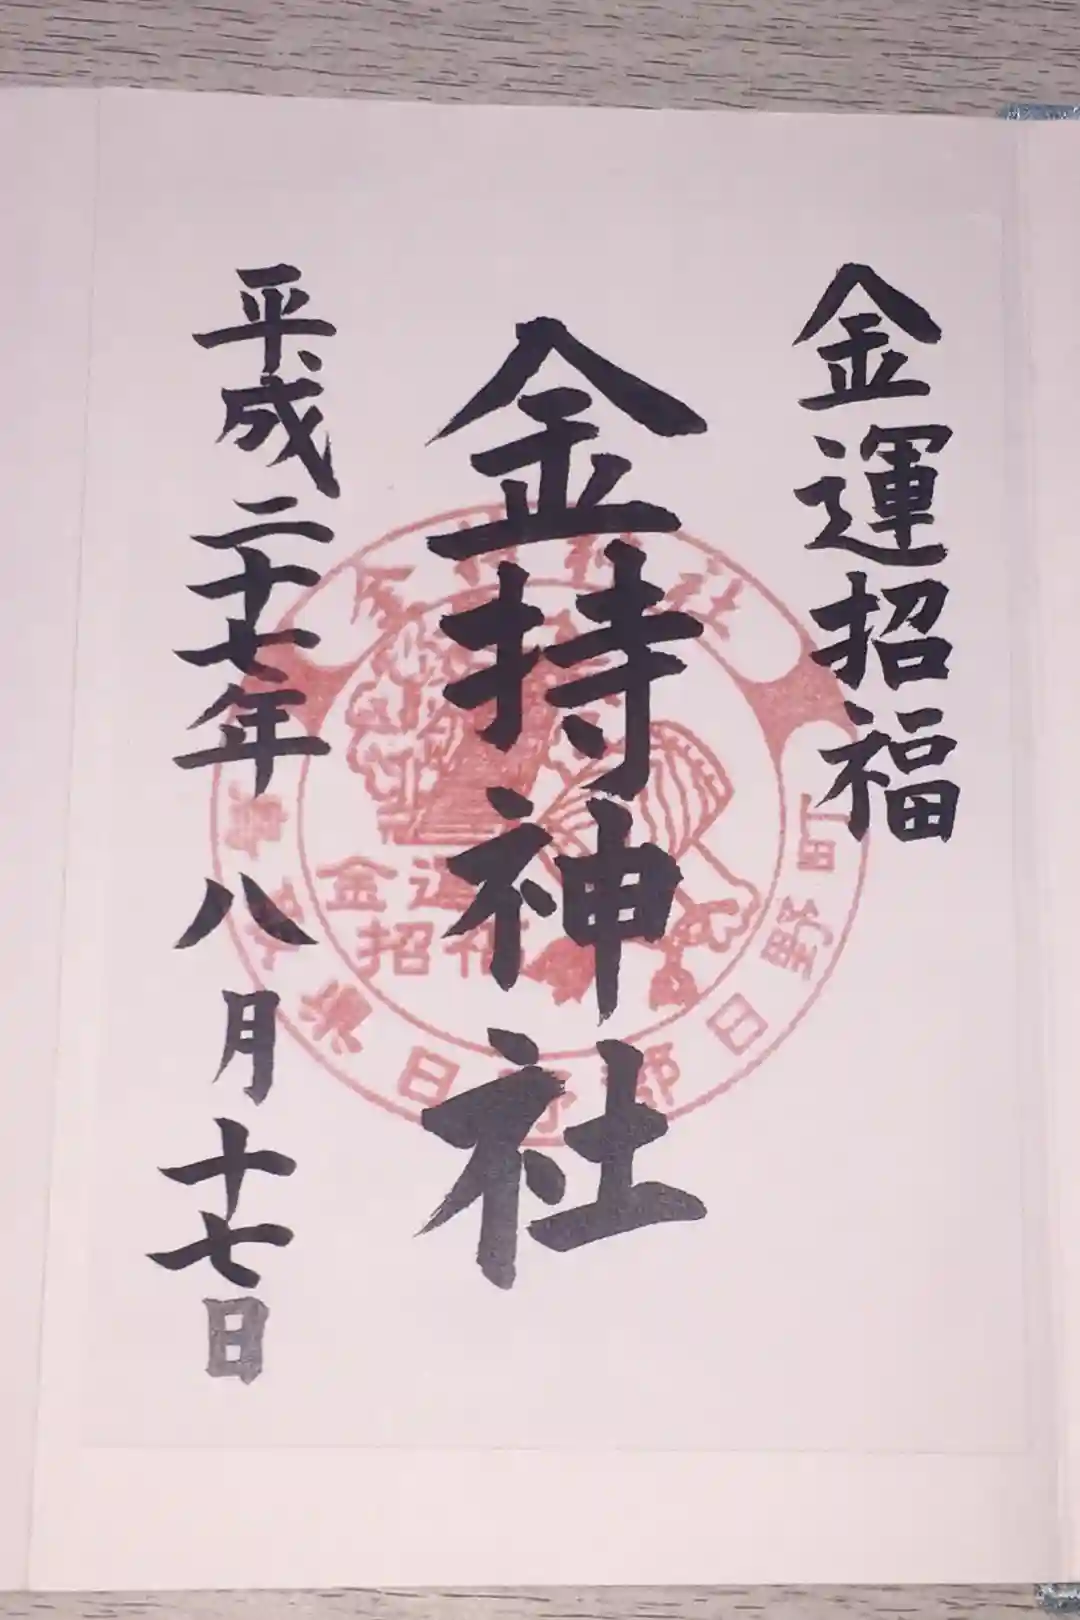 金運招福
金持神社
平成二十七年八月十七日
金持神社
鳥取県日野郡日野町
金運
招福